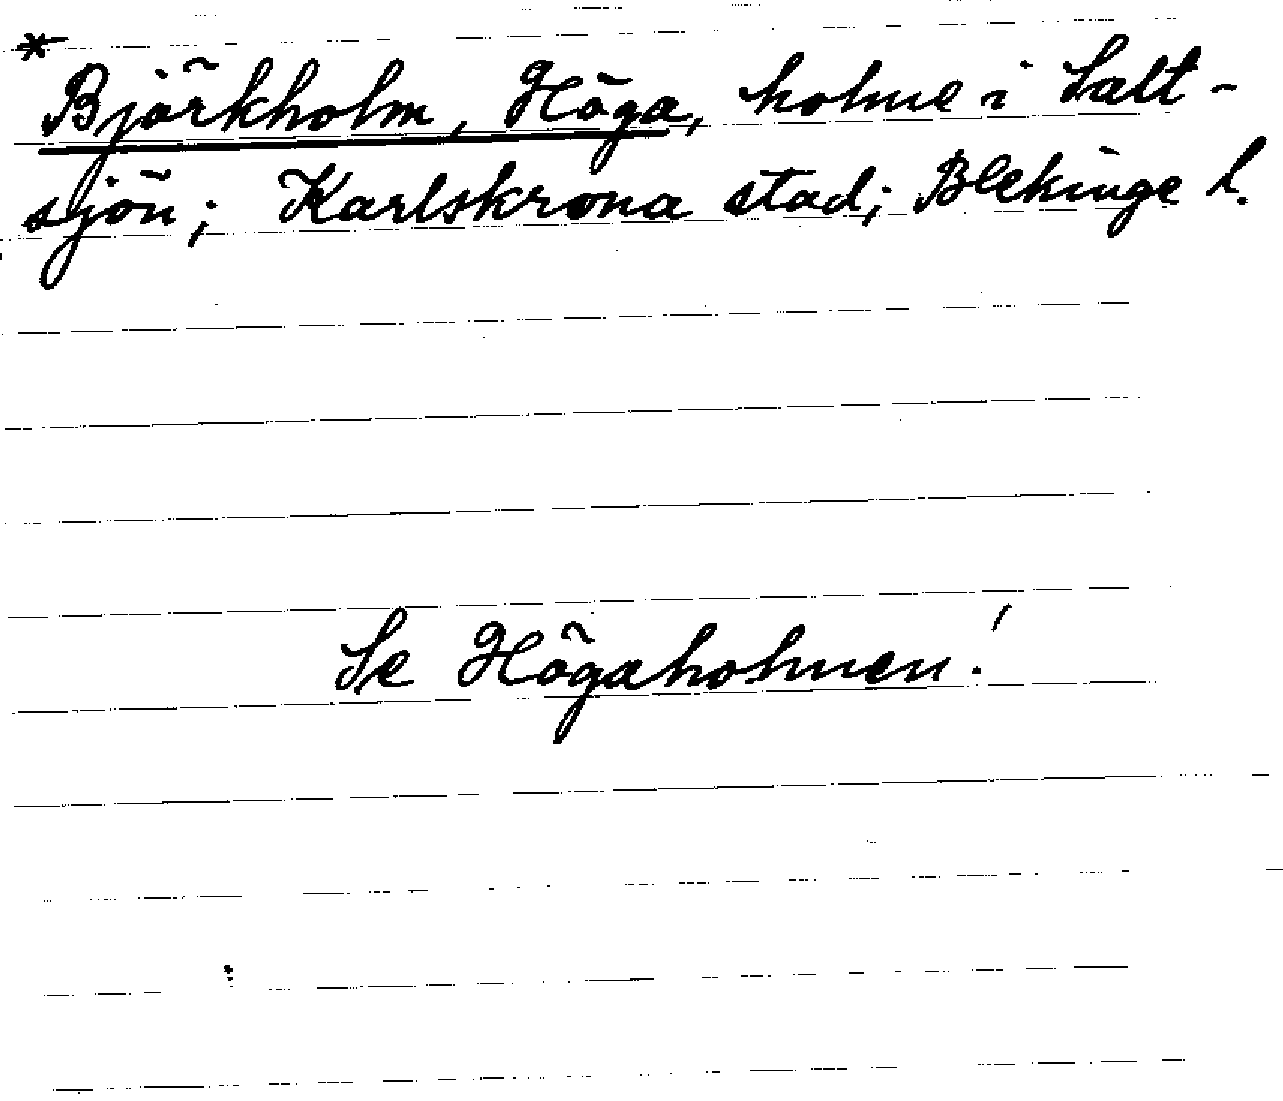 * Björkholm, Höga, holme i Salt-
sjön; Karlskrona stad; Blekinge l.
Se Högaholmen!